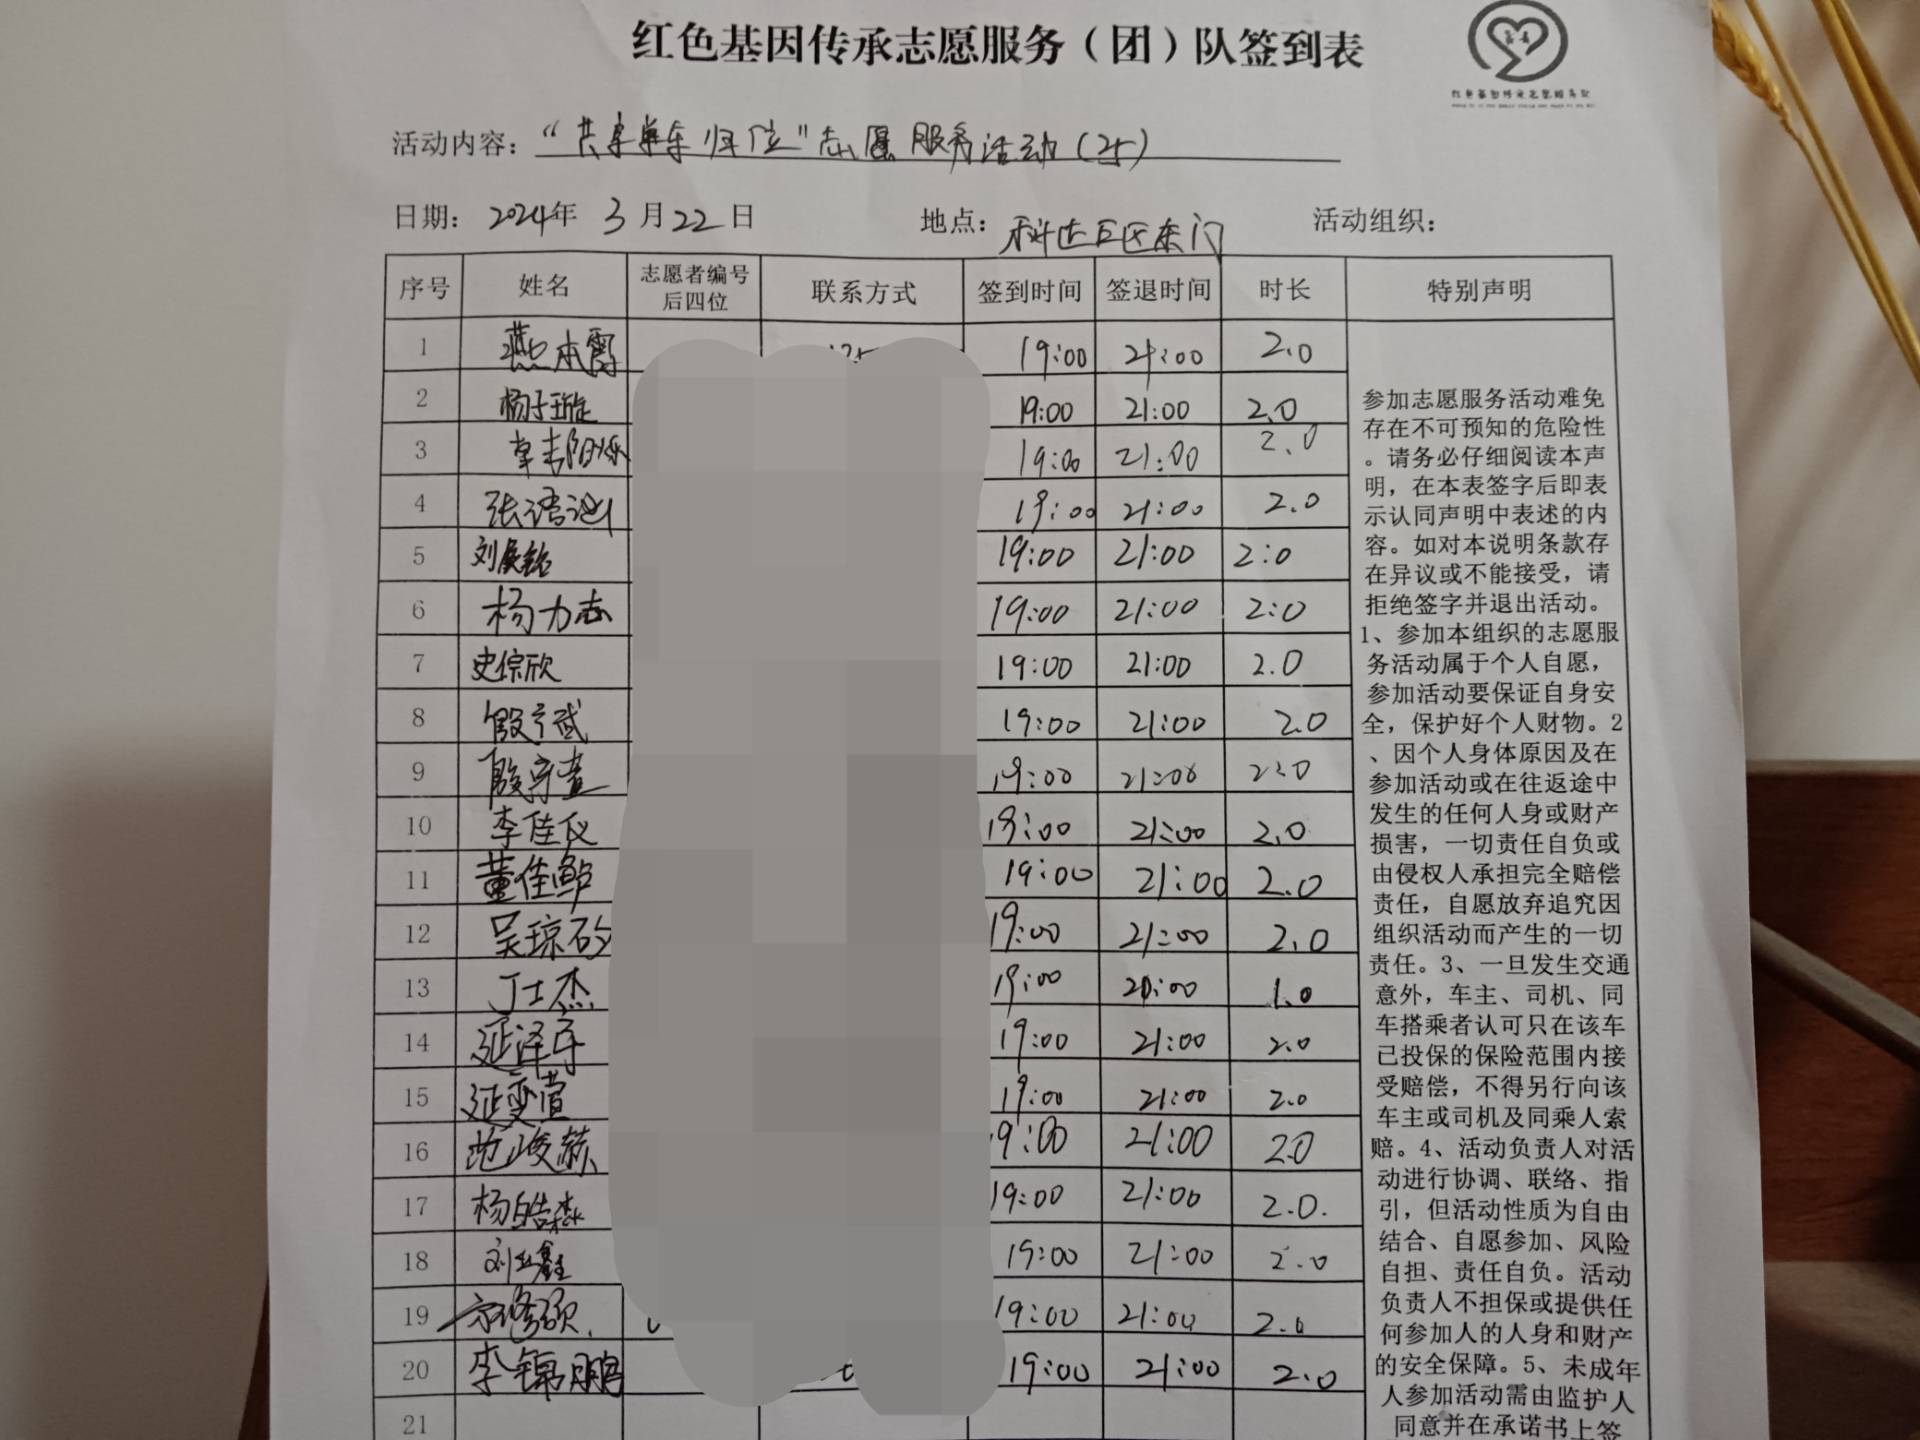 红色基因传承志愿服务（团）队签到表
活动内容：“共享单车归位”志愿服务活动（25）
日期：2024年 3月22日 地点：科达巨区东门 活动组织：
序号 姓名 志愿者编号后四位 联系方式 签到时间 签退时间 时长 特别声明
1 燕本霞 19:00 21:00 2.0
2 杨子璇 19:00 21:00 2.0
3 19:00 21:00 2.0
4 19:00 21:00 2.0
5 19:00 21:00 2:0
6 杨力志 19:00 21:00 2:0
7 史倧欣 19:00 21:00 2.0
8 19:00 21:00 2.0
9 19:00 21:00 2.0
10 李佳仪 19:00 21:00 2.0
11 董佳鲈 19:00 21:00 2.0
12 吴琼 19:00 21:00 2.0
13 丁士杰 19:00 20:00 1.0
14 延泽宇 19:00 21:00 2.0
15 延雯萱 19:00 21:00 2.0
16 范峻菥 19:00 21:00 2.0
17 杨皓淼 19:00 21:00 2.0.
18 19:00 21:00 2.0
19 19:00 21:00 2.0
20 李锦鹏 19:00 21:00 2.0
21
参加志愿服务活动难免
存在不可预知的危险性
。请务必仔细阅读本声
明，在本表签字后即表
示认同声明中表述的内
容。如对本说明条款存
在异议或不能接受，请
拒绝签字并退出活动。
1、参加本组织的志愿服
务活动属于个人自愿，
参加活动要保证自身安
全，保护好个人财物。2
、因个人身体原因及在
参加活动或在往返途中
发生的任何人身或财产
损害，一切责任自负或
由侵权人承担完全赔偿
责任，自愿放弃追究因
组织活动而产生的一切
责任。3、一旦发生交通
意外，车主、司机、同
车搭乘者认可只在该车
已投保的保险范围内接
受赔偿，不得另行向该
车主或司机及同乘人索
赔。4、活动负责人对活
动进行协调、联络、指
引，但活动性质为自由
结合、自愿参加、风险
自担、责任自负。活动
负责人不担保或提供任
何参加人的人身和财产
的安全保障。5、未成年
人参加活动需由监护人
同意并在承诺书上签